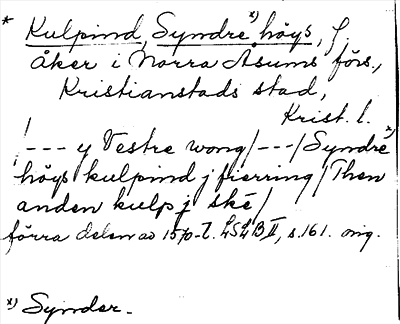 * Kulpind, Syndre x) höys, f.
åker i Norra Åsums förs.,
Kristianstads stad,
Krist. l.
/--- y Vestre wong/---/Syndre x)
höys kulpind j fierring/Then
anden kulp j ské/
förra delen av 1570-t. LSLB II, s. 161. orig.
x) Synder.